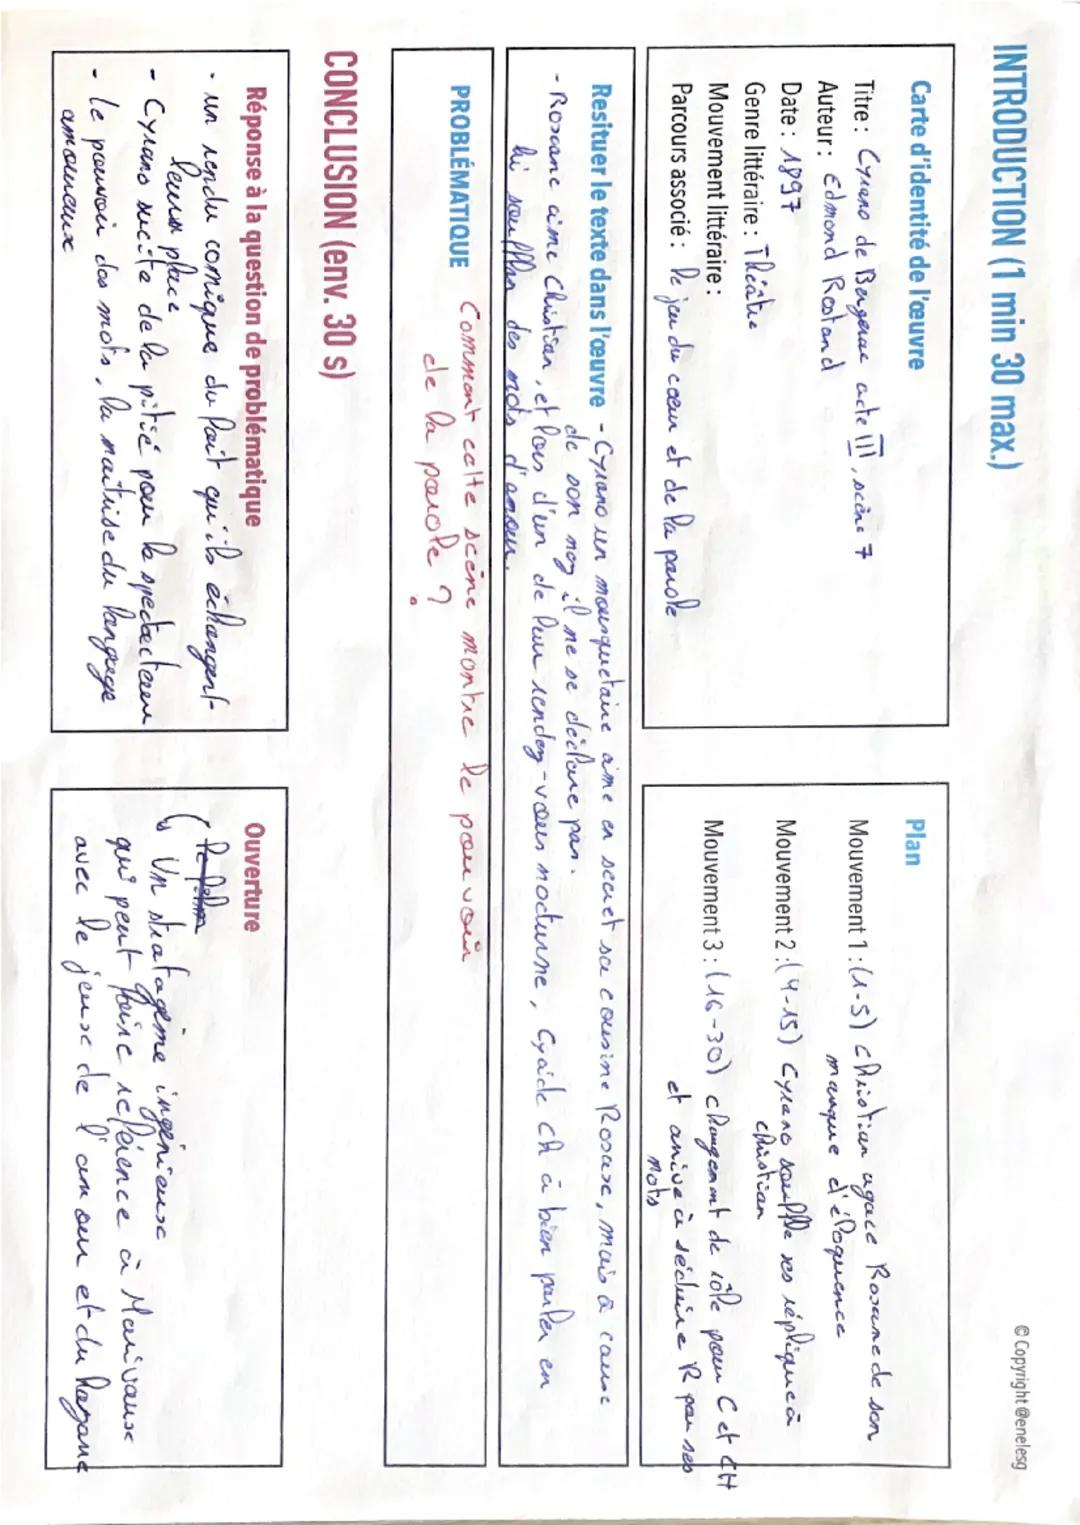 INTRODUCTION (1 min 30 max.)
© Copyright @enelesg
Carte d'identité de l'œuvre
Titre : Cyrano de Bergerac acte III, scène 7
Auteur : Edmond Rostand
Date : 1897
Genre littéraire : Théâtre
Mouvement littéraire :
Parcours associé : le jeu du cœur et de la parole
Plan
Mouvement 1 : (1-5) Christian agace Roxane de son
manque d'éloquence
Mouvement 2 : (4-15) Cyrano souffle ses répliques à
christian
Mouvement 3 : (16-30) changement de rôle pour C et CH
et arrive à séduire R par ses
mots
Resituer le texte dans l'œuvre - Cyrano un mousquetaire aime en secret sa cousine Roxane, mais à cause
de son nez il ne se déclare pas.
- Roxane aime Christian, et lors d'un de leur rendez-vous nocturne, Cyaide ch à bien parler en
lui soufflan des mots d'amour.
PROBLÉMATIQUE Comment cette scène montre le pouvoir
de la parole ?
CONCLUSION (env. 30 s)
Réponse à la question de problématique
- un rendu comique du fait qu'ils échangent
leurs place
- Cyrano sucite de la pitié pour le spectateur
- le pouvoir des mots, la maîtrise du langage
amoureux
Ouverture
le film
↳ Un stratagème ingénieux
qui peut faire référence à Marivaux
avec le jeux de l'amour et du hasard